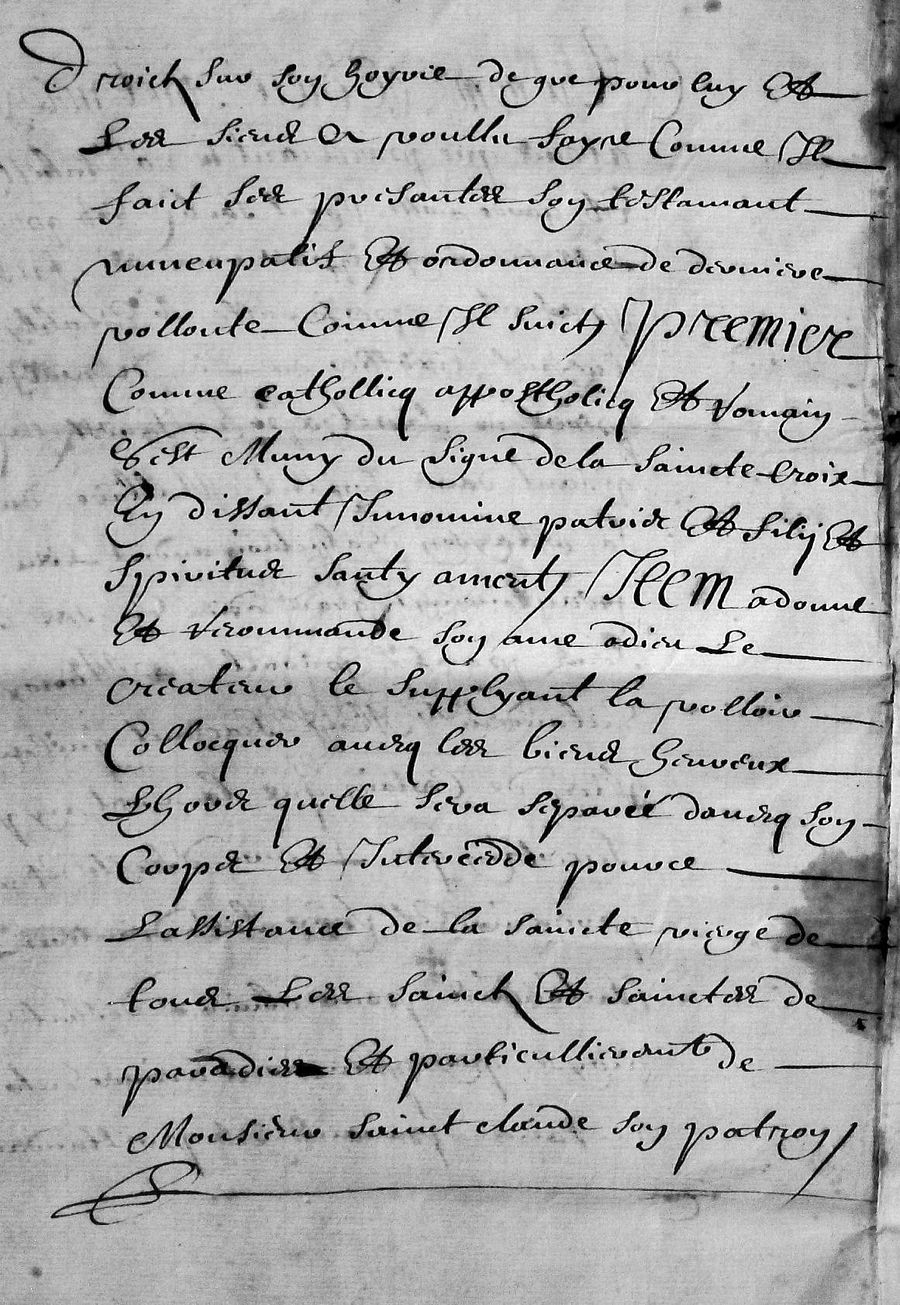 droict sur son hoyrie de que pour luy Et
Les siens a voullu fayre Comme Il
faict ses presantes son testamant
nuncupatif Et ordonnance de derniere
vollonte Comme Il suict Premier
Comme cathollicq appostholicq Et Romain
Sest Muny du signe de la saincte Croix
En dissant In nomine patris Et filij Et
Spiritus santy ament Item a donne
Et Recommande son ame a dieu Le
Createur le supplyant la volloir
Collocquer auecq les biens heureux
Lhors quelle sera separée dauecq son
Corps Et Intercedde pour ce
Lassistance de la saincte vierge de
tous Les sainct Et sainctes de
paradis Et particullierement de
Monsieur sainct claude son patron